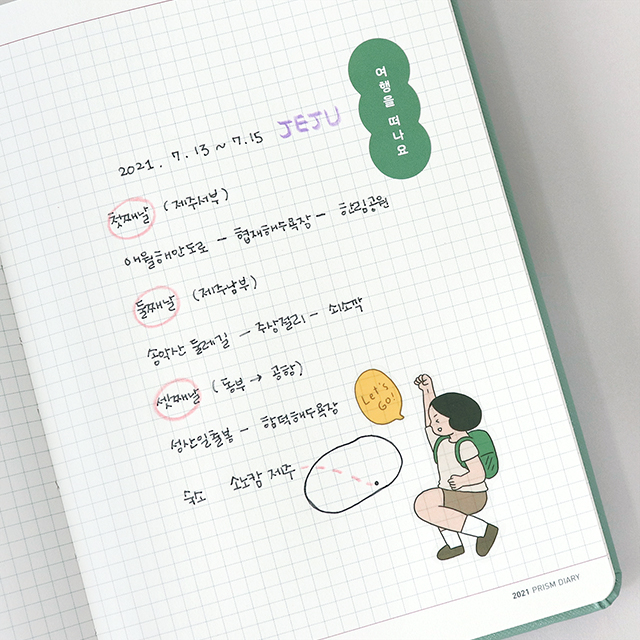 여행을 떠나요
2021. 7. 13 ~ 7. 15 JEJU
첫째날 (제주서부)
애월해안도로 - 협재해수욕장 - 한림공원
둘째날 (제주남부)
송악산 둘레길 - 주상절리 - 쇠소깍
셋째날 (동부 → 공항)
성산일출봉 - 함덕해수욕장
Let's
GO!
숙소 소노캄 제주
2021 PRISM DIARY